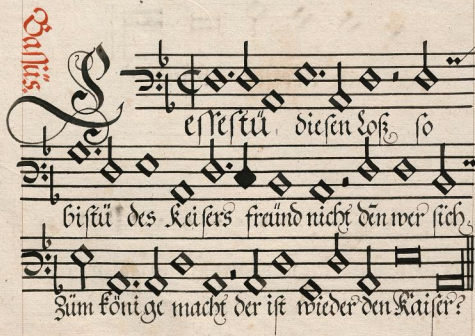 Bassüs.
Lessestü diesen Loß so
bistü des Keisers freünd nicht den̄ wer sich
Züm könige macht der ist wieder den Kaiser?